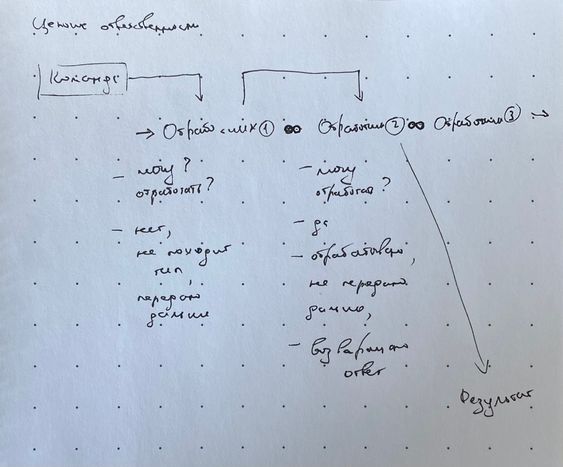 Цепочка ответственности
Команда
→ Обработчик ① ∞ Обработчик ② ∞ Обработчик ③ →
— могу?
отработать?
— нет,
не походит
тип,
передаю
дальше
— могу
отработать?
— да
— обрабатываю,
не передаю
дальше,
— возвращаю
ответ
Результат